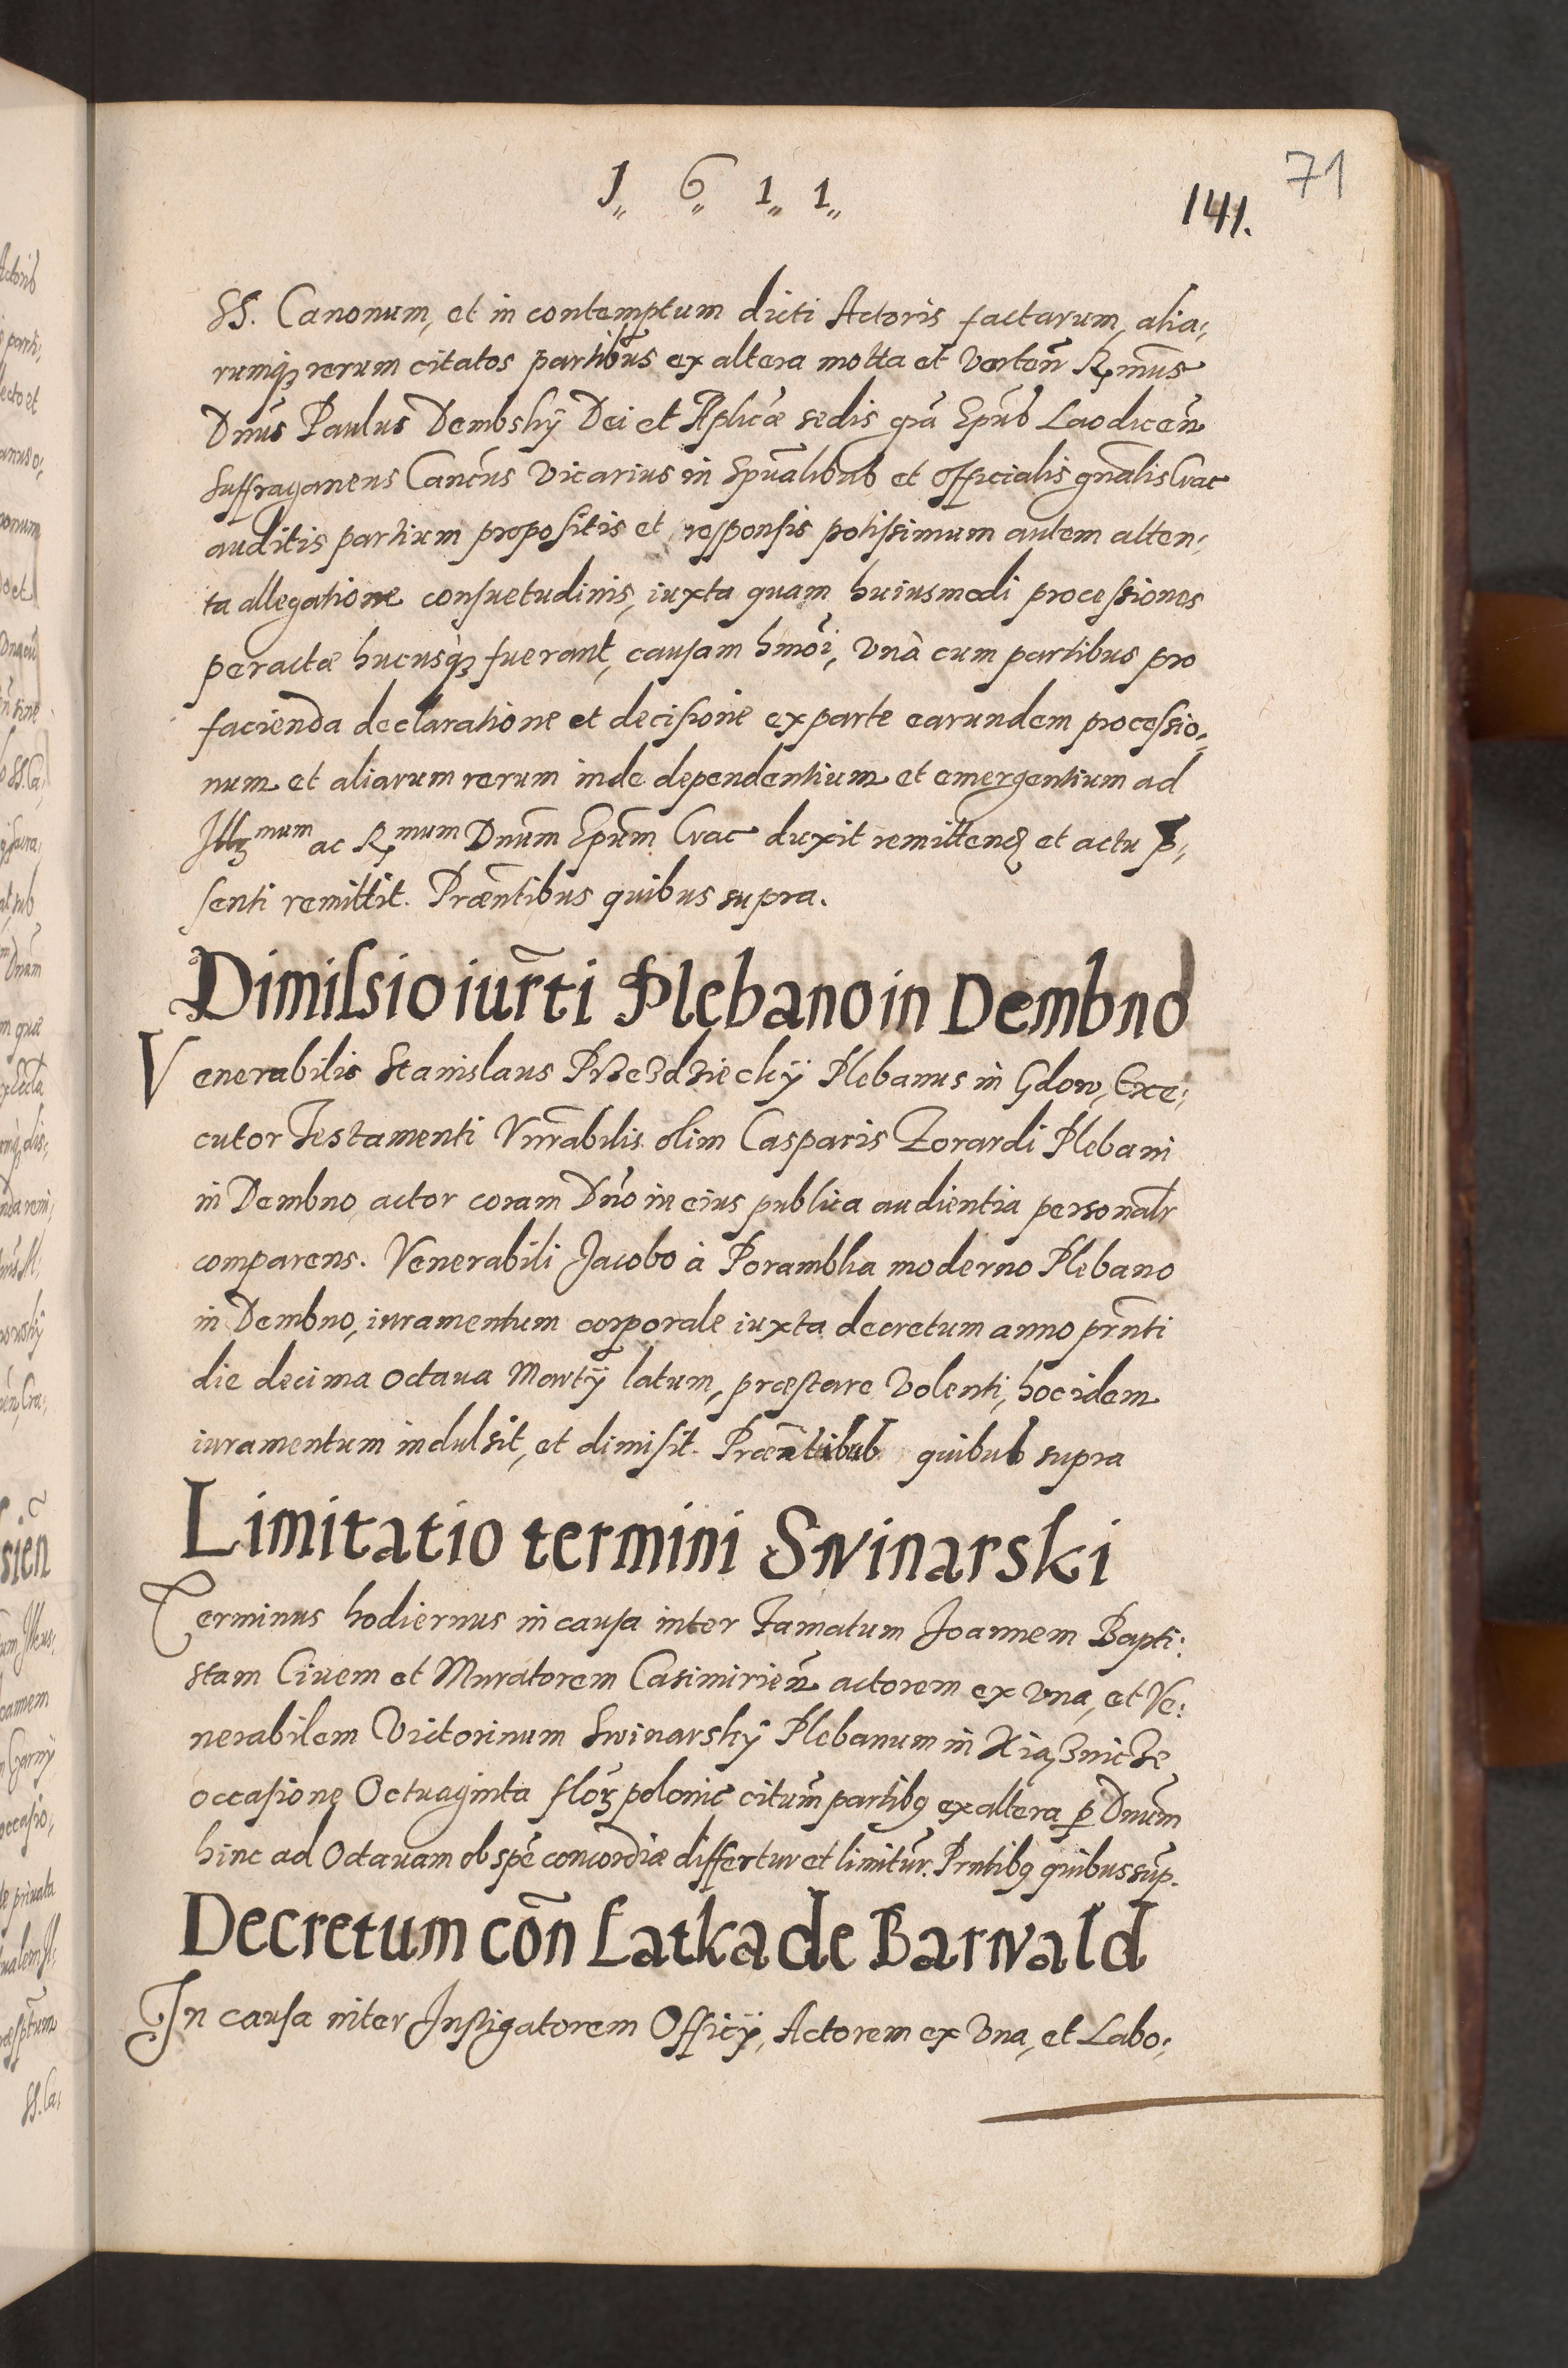 1 6 1 1
141.
71
SS. Canonum, et in contemptum dicti Actoris factarum, alia,
rumq́ꝫ rerum citatos partibus ex altera motta et verteñ Rꝫm̃us
Dñus Paulus Dembskÿ Dei et Aplicæ sedis gr̃a Ep̃us Laodiceñ
Suffraganeus Cancus Vicarius in Spũalibus et Officialis gñalis Crac
auditis partium propositis et responsis potissimum autem atten,
ta allegatione consuetudinis, iuxta quam huiusmodi processiones
peractæ hucusq́ꝫ fuerant, causam hmõi, vnà cum partibus pro
facienda declaratione et decisione ex parte earundem processio,
num et aliarum rerum inde dependentium et emergentium ad
Illꝫmum ac Rꝫmum Dnũm Epũm Crac duxit remittend et actu p̃,
senti remittit. Præñtibus quibus supra.
Dimissio iur̃ti Plebano in Dembno
Venerabilis Stanislaus Przezdzieckÿ Plebanus in Gdow, Exe,
cutor Testamenti Vnr̃abilis olim Casparis Zorardi Plebani
in Dembno actor coram Dño in eius publica audientia personalr
comparens. Venerabili Jacobo à Porambka moderno Plebano
in Dembno, iuramentum corporale iuxta decretum anno pr̃nti
die decima octaua Martÿ latum, præstare volenti, hoc idem
iuramentum indulsit, et dimisit. Præñtibus quibus supra
Limitatio termini Swinarski
Terminus hodiernus in causa inter Famatum Joannem Bapti:
stam Ciuem et Muratorem Casimirieñ actorem ex vna, et Ve:
nerabilem Victorinum Swinarskÿ Plebanum in Xiąznicze
occasione Octuaginta florꝫ polonic citum̃ partibꝰ ex altera ꝑ Dnũm
hinc ad Octauam ob spẽ concordiæ differtur et limitũr. Prntibꝰ quibus sup̃.
Decretum cõn Latka de Barwald
In causa inter Instigatorem Officÿ, Actorem ex vna, et Labo,